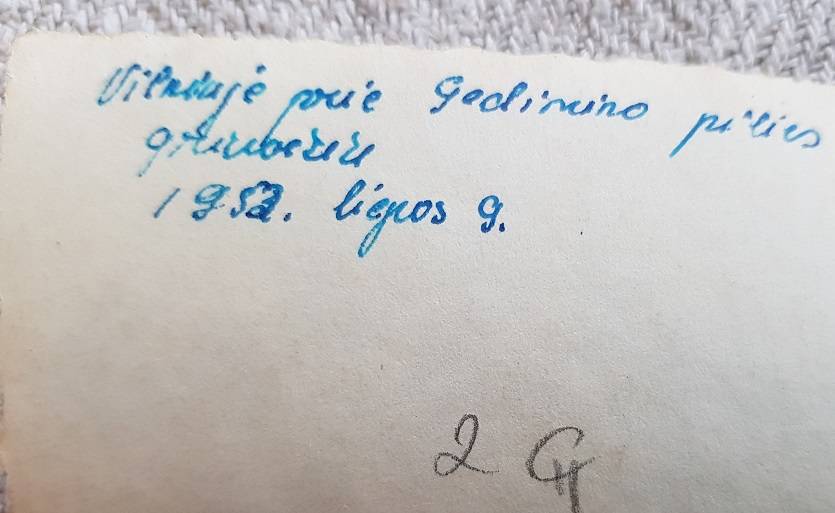 Vilniuje prie Gedimino pilies
griuvėsių
1952. liepos 9.
2